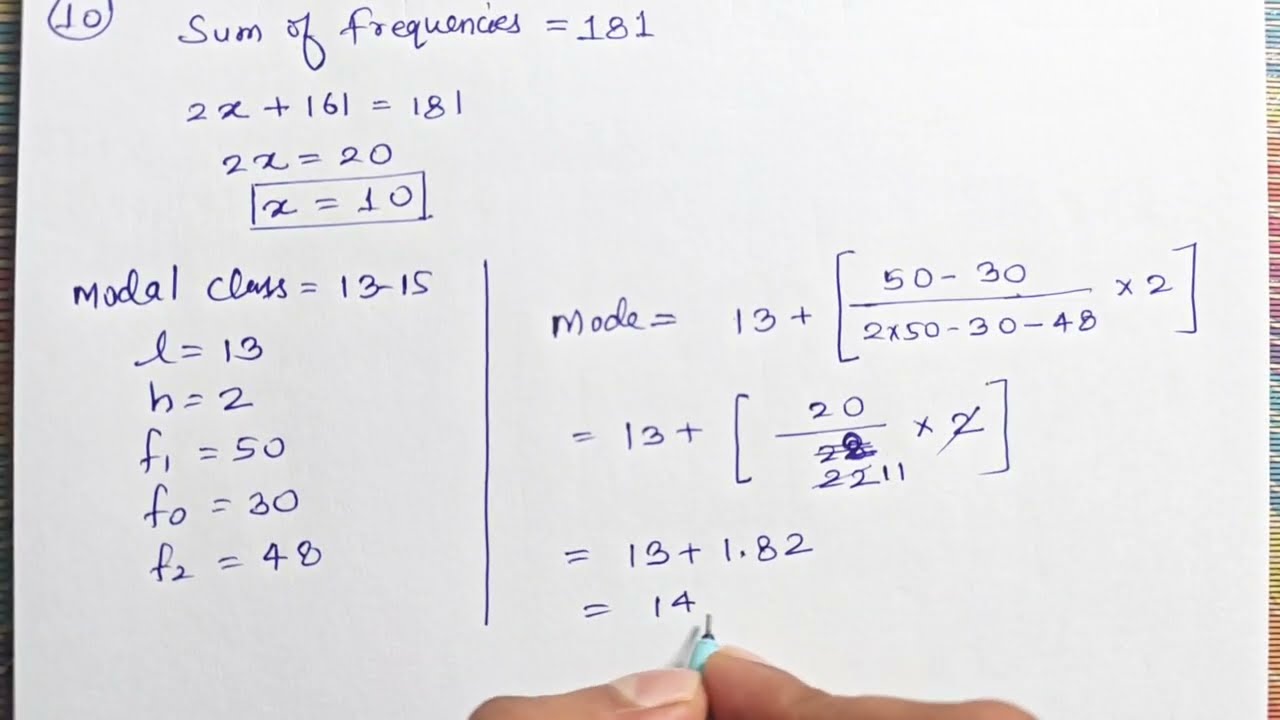 10 Sum of frequencies = 181
2x + 161 = 181
2x = 20
x = 10
Modal class = 13-15
l = 13
h = 2
f₁ = 50
f₀ = 30
f₂ = 48
Mode = 13 + [ (50 - 30) / (2×50 - 30 - 48) × 2 ]
= 13 + [ 20 / 22 11 × 2 ]
= 13 + 1.82
= 14